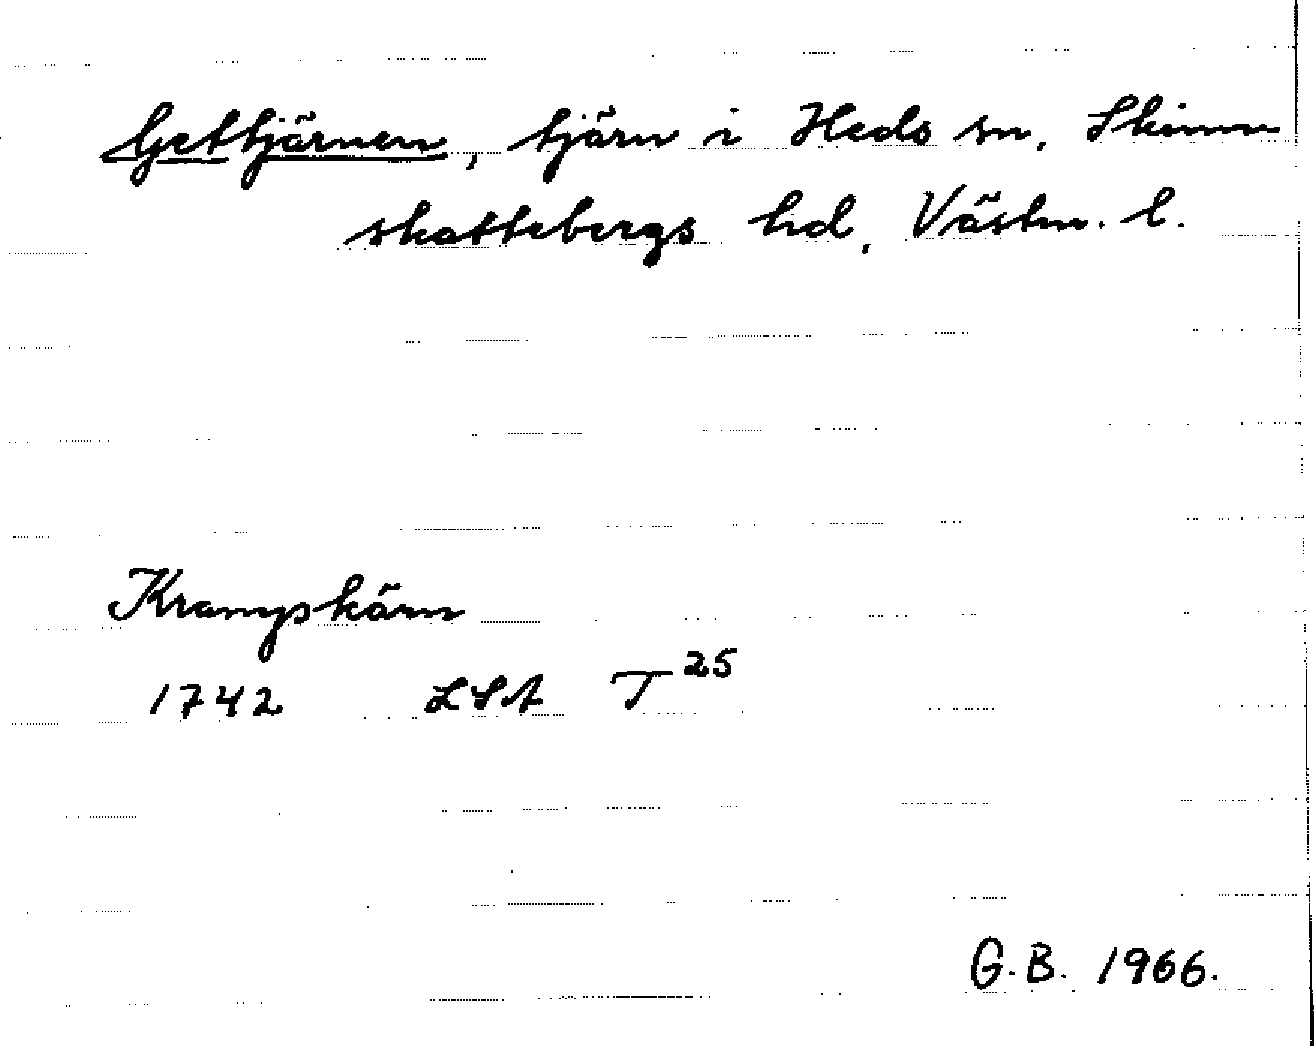 Gettjärnen, tjärn i Heds sn, Skinn
skattebergs hd, Västm. l.
Krampskärn
1742 LSA T 25
G.B. 1966.